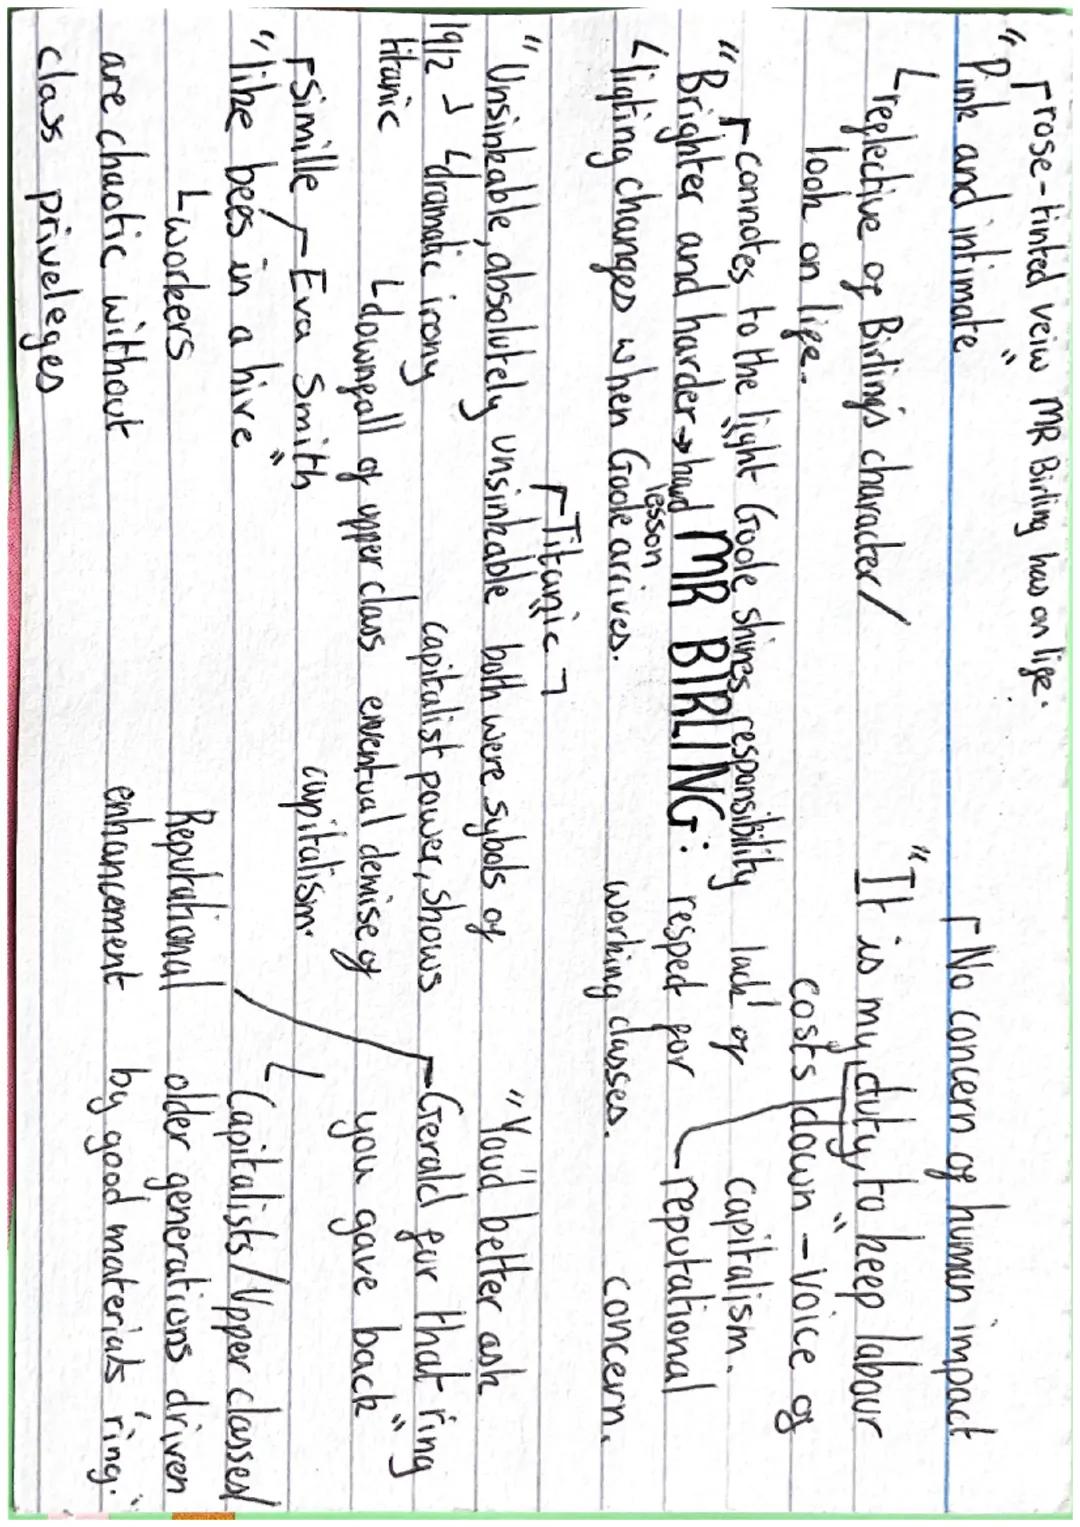 rose-tinted veiw MR Birling has on life.
"Pink and intimate"
reflective of Birling's character/
look on life.
No concern of human impact
"It is my duty to keep labour
costs down" - voice of
capitalism.
connotes to the light Goole shines, responsibility
"Brighter and harder" → hard
lesson
lighting changes when Goole arrives.
MR BIRLING:
lack of
respect for
working classes.
reputational
concern.
Titanic
"Unsinkable, absolutely unsinkable"
1912
titanic
dramatic irony
both were sybols of
capitalist power, shows
downfall of upper class eventual demise of
capitalism.
simille
Eva Smith
"like bees in a hive"
workers
are chaotic without
class priveleges
"You'd better ask
Gerald for that ring
you gave back"
Capitalists/Upper classes/
older generations driven
by good materials "ring."
Reputational
enhancement